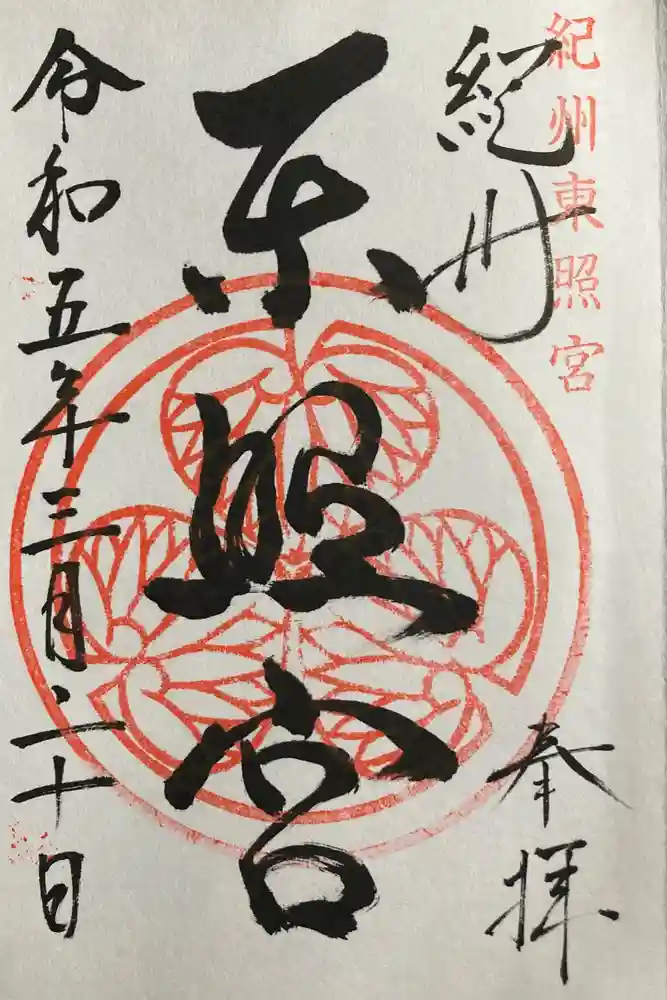 紀州東照宮
紀州
奉拝
東照宮
令和五年三月二十日